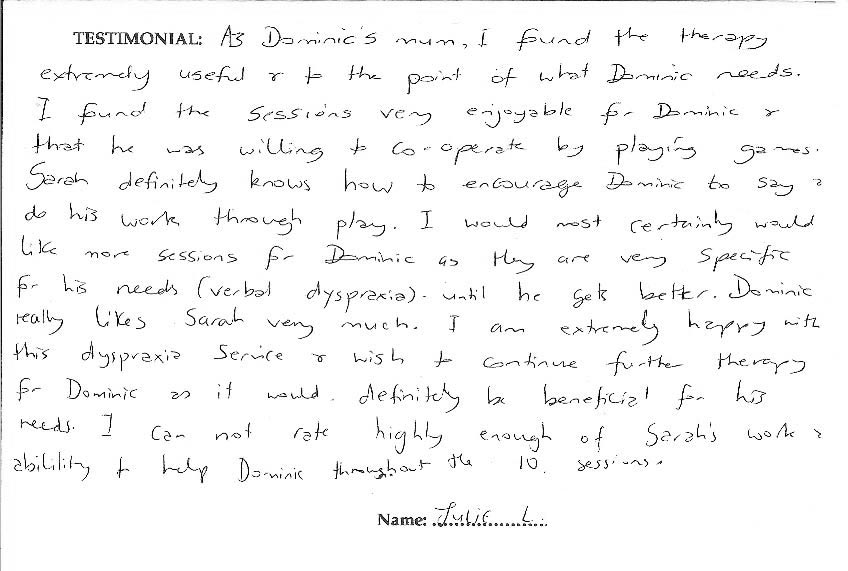 TESTIMONIAL: As Dominic's mum, I found the therapy
extremely useful & to the point of what Dominic needs.
I found the sessions very enjoyable for Dominic &
that he was willing to co-operate by playing games.
Sarah definitely knows how to encourage Dominic to say &
do his work through play. I would most certainly would
like more sessions for Dominic as they are very specific
for his needs (verbal dyspraxia). until he gets better. Dominic
really likes Sarah very much. I am extremely happy with
this dyspraxia service & wish to continue further therapy
for Dominic as it would definitely be beneficial for his
needs. I can not rate highly enough of Sarah's work &
abilility to help Dominic throughout the 10 sessions.
Name: Julie L.